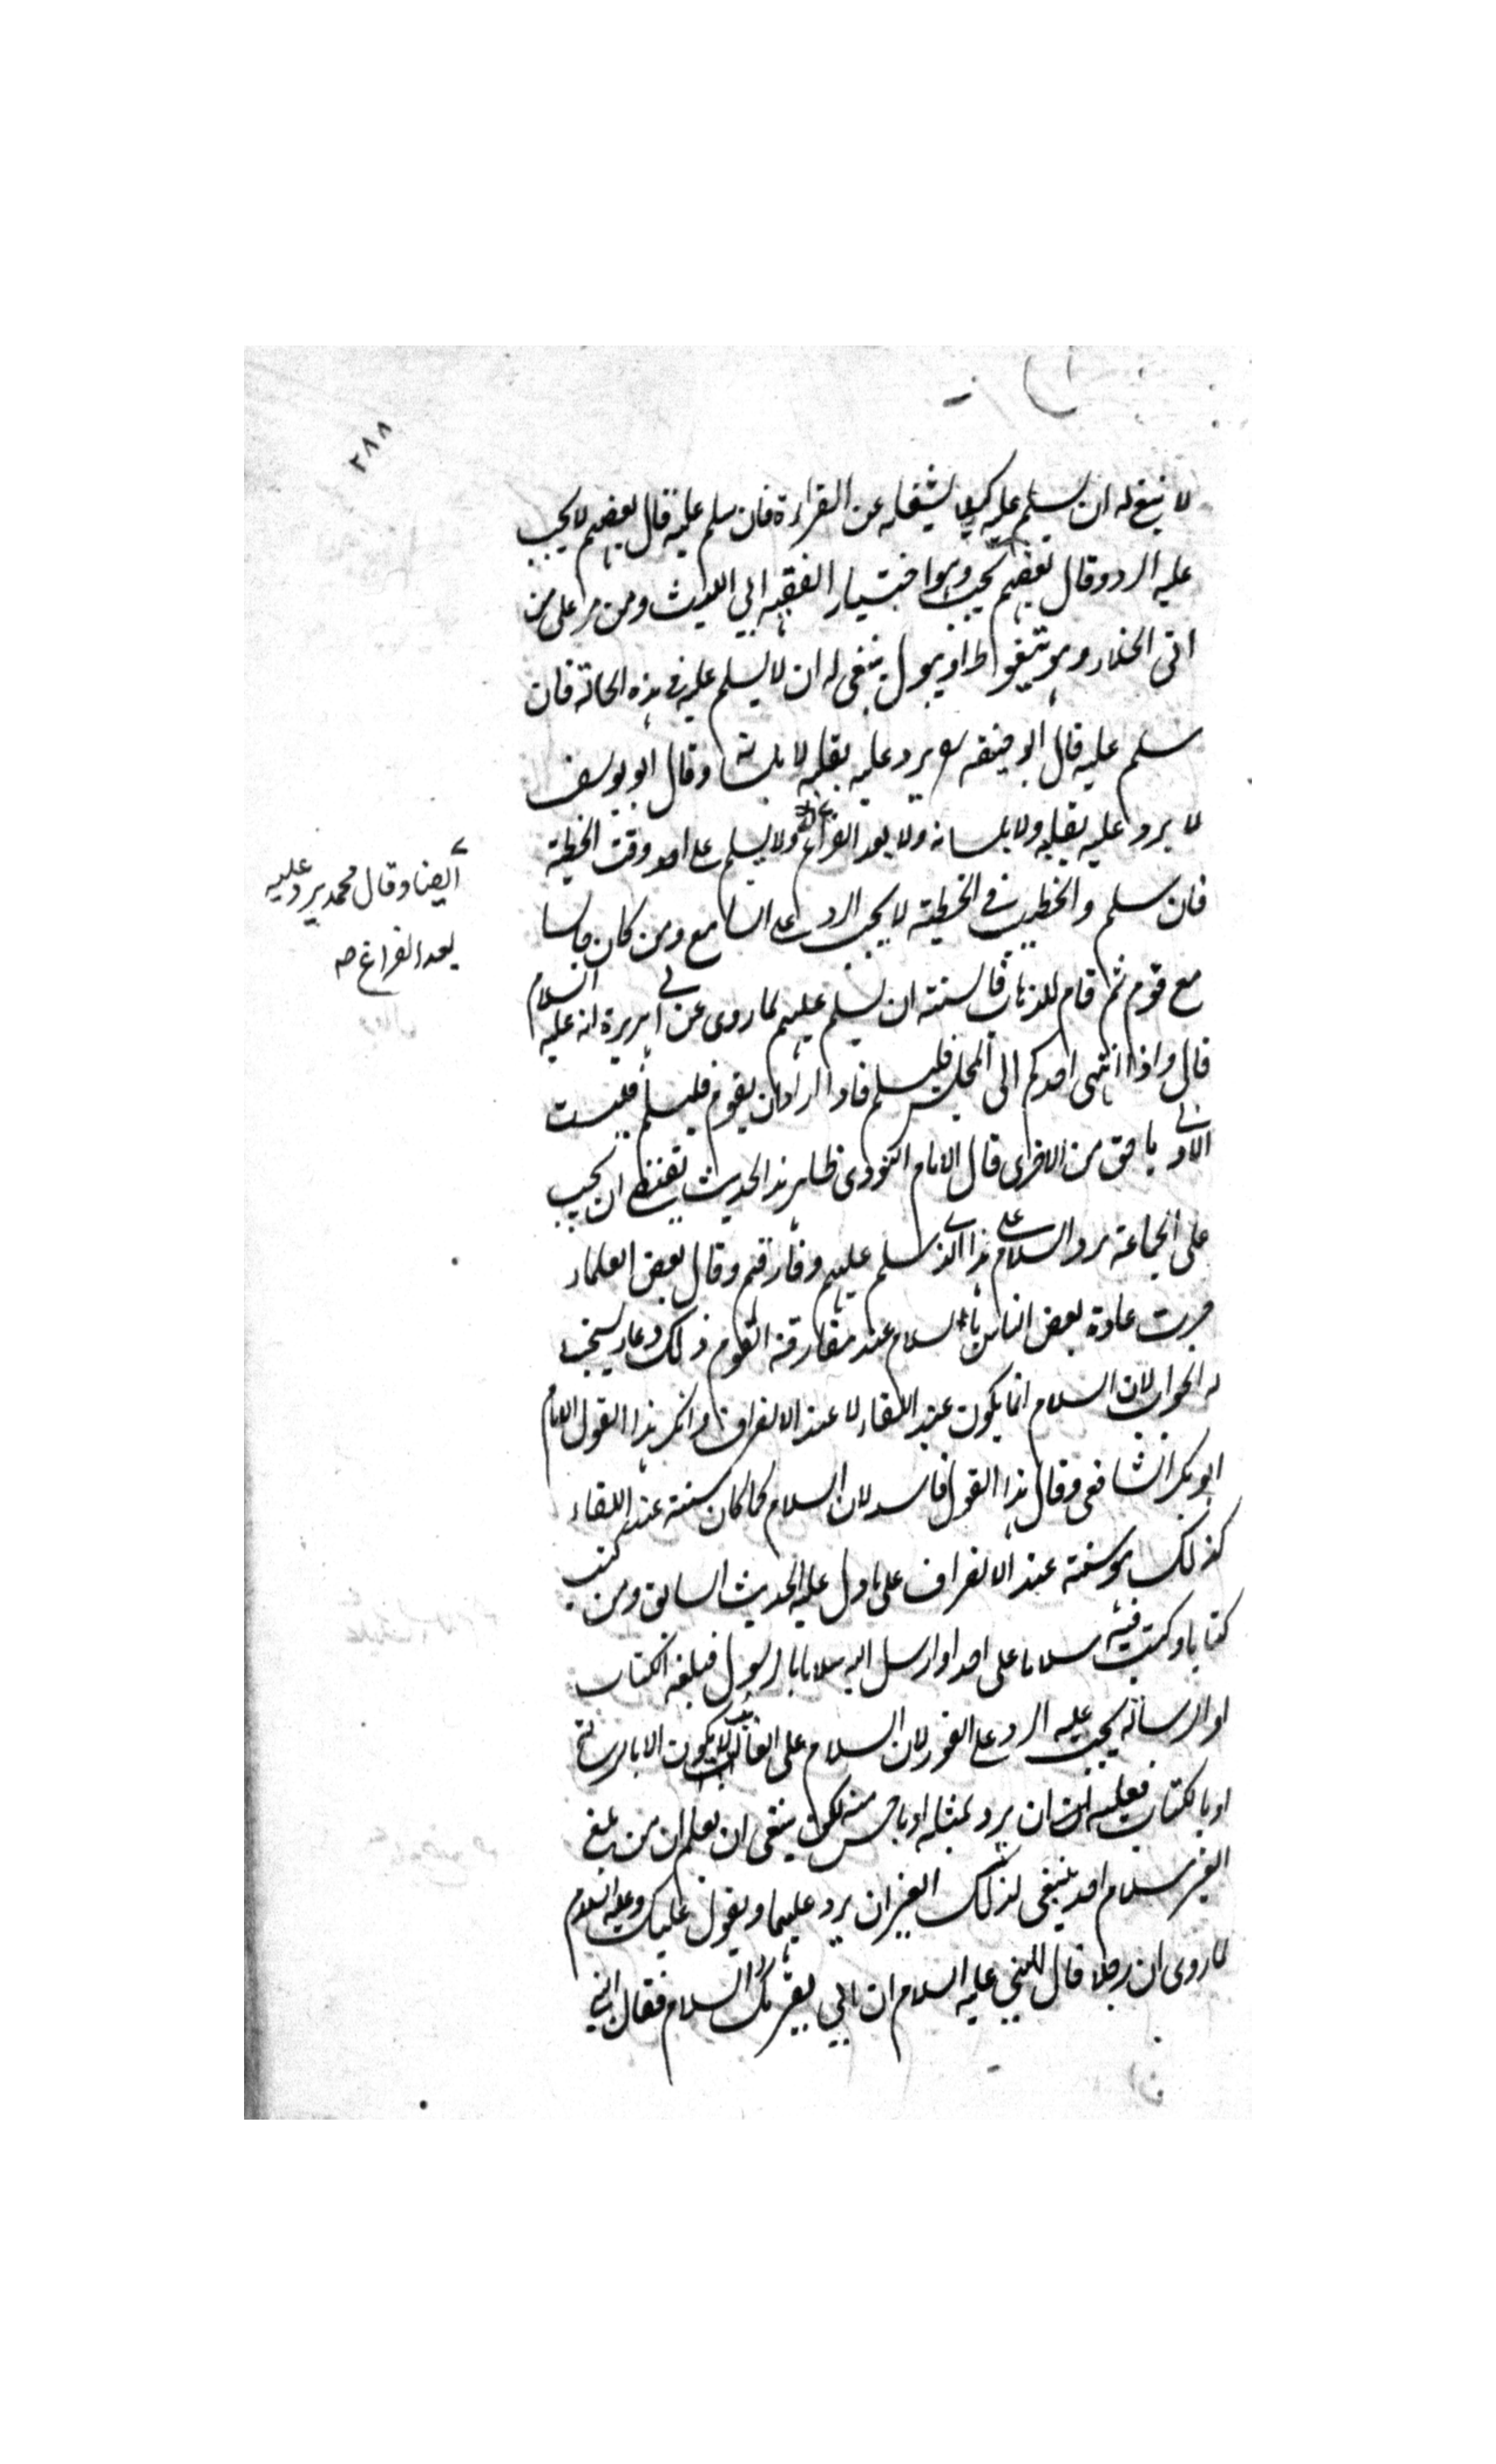 ٢٨٨
لا ينبغي له ان يسلم عليه كيلا يشغله عن القراءة فان سلم عليه قال بعضهم لا يجب
عليه الرد وقال بعضهم يجب وهو اختيار الفقيه ابي الليث ومن مر على من
اتى الخلاء وهو يتغوط او يبول ينبغي له ان لا يسلم عليه في هذه الحالة فان
سلم عليه قال ابو حنيفه يرد عليه بقلبه لا بلسانه وقال ابو يوسف
لا يرد عليه بقلبه ولا بلسانه ولا بعد الفراغ ولا يسلم على احد وقت الخطبة
ايضا وقال محمد يرد عليه
بعد الفراغ صح
فان سلم والخطيب في الخطبة لا يجب الرد على السامع ومن كان جالسا
مع قوم ثم قام للذهاب فالسنة ان يسلم عليهم لما روى عن ابي هريرة انه عليه السلام
قال واذا انتهى احدكم الى المجلس فليسلم فاذا اراد ان يقوم فليسلم فليست
الاولى باحق من الاخرى قال الامام النووى ظاهر هذا الحديث يقتضي ان يجب
على الجماعة رد السلام على هذا الذي سلم عليهم وفارقهم وقال بعض العلماء
جرت عادة بعض الناس بالسلام عند مفارقة القوم ذلك دعاء يستحب
له الجواب لان السلام انما يكون عند اللقاء لا عند الانصراف وانكر هذا القول الامام
ابو بكر الشافعى وقال هذا القول فاسد لان السلام كما كان سنة عند اللقاء
كذلك هو سنة عند الانصراف على ما دل عليه الحديث السابق ومن كتب
كتابا وكتب فيه سلاما على احد او ارسل اليه سلاما بالرسول فبلغه الكتاب
او الرسالة يجب عليه الرد على الفور لان السلام على الغائب لا يكون الا بالرسالة
او بالكتاب فعليه ان يرد بمثله او باحسن منه لكن ينبغى ان يعلم ان من بلغ
الغير سلام احد ينبغى لذلك الغير ان يرد عليهما ويقول عليك وعليه السلام
لما روى ان رجلا قال للنبي عليه السلام ان ابي يقرئك السلام فقال النبي